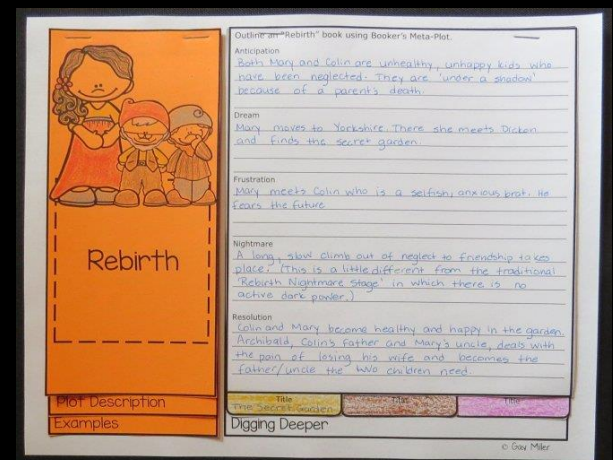 Outline an "Rebirth" book using Booker's Meta-Plot.
Anticipation
Both Mary and Colin are unhealthy, unhappy kids who
have been neglected. They are 'under a shadow'
because of a parent's death.
Dream
Mary moves to Yorkshire. There she meets Dickon
and finds the secret garden.
Frustration
Mary meets Colin who is a selfish, anxious brat. He
fears the future
Nightmare
A long, slow climb out of neglect to friendship takes
place. (This is a little different from the traditional
'Rebirth Nightmare Stage' in which there is no
active dark power.)
Resolution
Colin and Mary become healthy and happy in the garden.
Archibald, Colin's father and Mary's uncle, deals with
the pain of losing his wife and becomes the
father/uncle the two children need.
Rebirth
Plot Description
Examples
Title
The Secret Garden
Title
Title
Digging Deeper
© Gay Miller